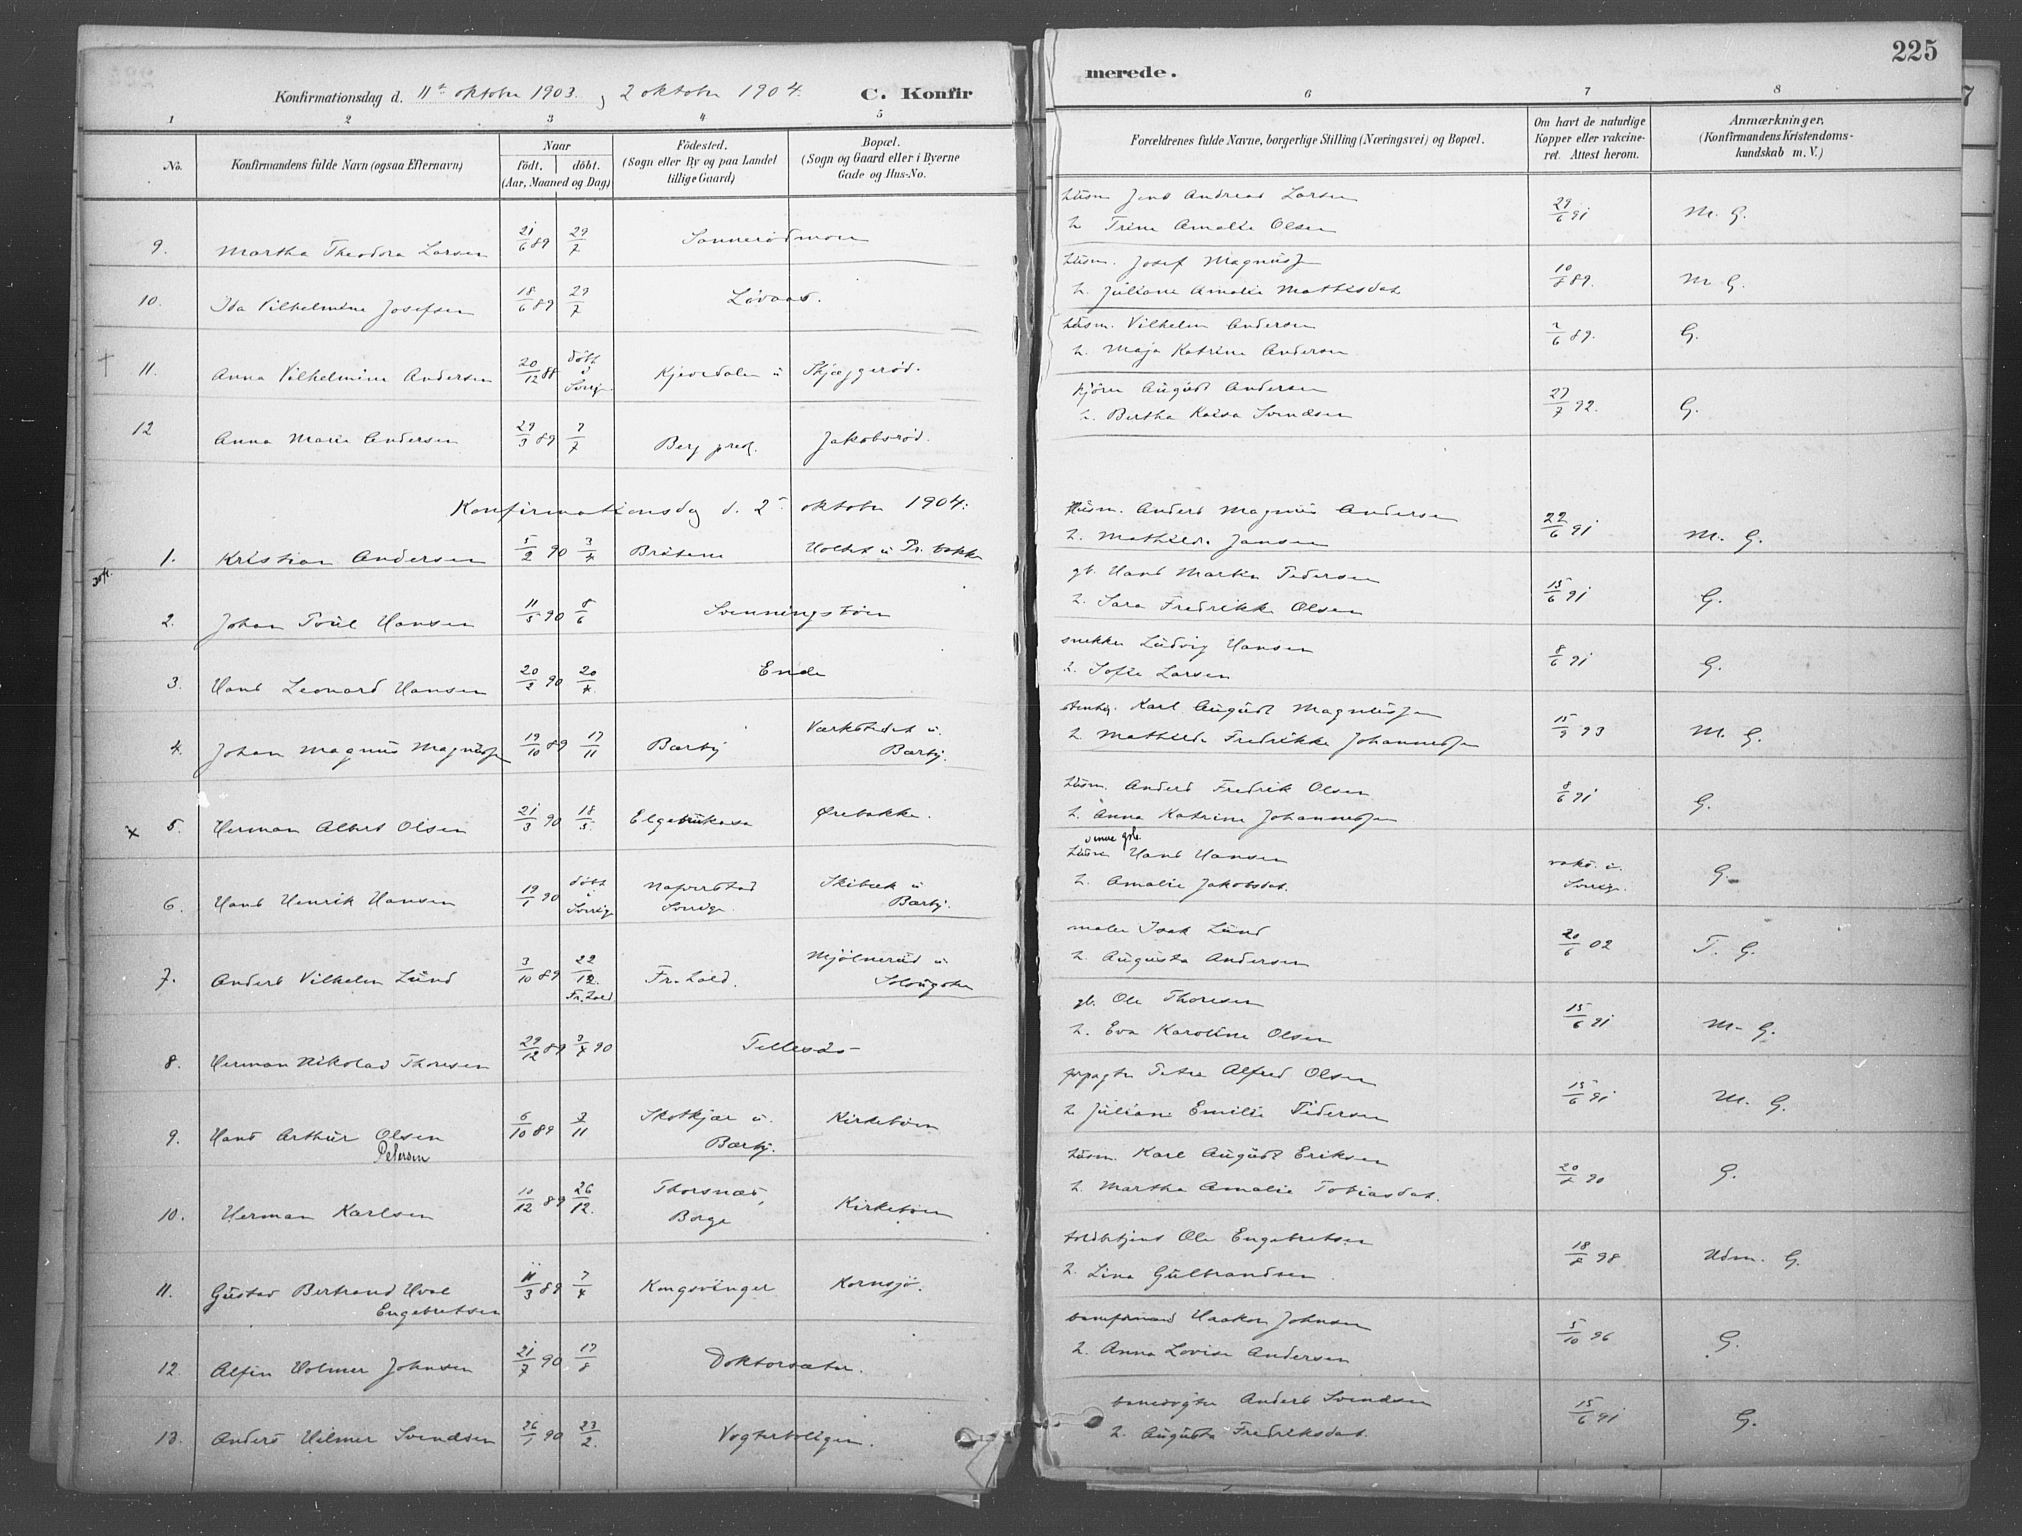 225
Konfirmationsdag d. 11te oktober 1903. 2 oktober 1904. C. Konfirmerede.
1 2 3 4 5 6 7 8
No. Konfirmandens fulde Navn (ogsaa Efternavn) Naar født. døbt. (Aar, Maaned og Dag) Fødested. (Sogn eller By og paa Landet tillige Gaard) Bopæl. (Sogn og Gaard eller i Byerne Gade og Hus-No. Forældrenes fulde Navne, borgerlige Stilling (Næringsvei) og Bopæl. Om havt de naturlige Kopper eller vakcineret. Attest herom. Anmærkninger. (Konfirmandens Kristendomskundskab m. V.)
9. Martha Theodora Larsen 21/6 89 29/7 Sannerødmon husm Jens Andreas Larsen 29/6 91 M. G.
h. Trine Amalie Olsen
10. Ida Vilhelmine Josefsen 18/6 89 29/7 Løvaas. husm. Josef Magnussen 10/8 89. M G.
h. Juliane Amalie Mathisdat
11. Anna Vilhelmine Andersen 20/12 88 døbt i Sverige Kjevedalen u Skjæggerød. husm. Vilhelm Andersen 89. G.
h. Maja Katrine Andersen
12 Anna Marie Andersen 29/3 89 7/7 Berg præst. Jakobsrød. August Andersen 27/7 92. G.
h. Bertha Kaisa Svendsen
Konfirmationsdag d. 2den oktober 1904:
1. Kristian Andersen 5/2 90 3/4 Bråtene Holtet u Pr. bakke Husm. Anders Magnus Andersen 22/6 91 M. G.
h. Mathilde Jansen
2. Johan Poul Hansen 11/5 90 8/6 Svenningsbøen gb. Hans Martin Pedersen 15/6 91 G.
h. Sara Fredrikke Olsen
3. Hans Leonard Hansen 20/2 90 20/4 Ende snekker Ludvig Hansen 8/6 91 G.
h. Sofie Larsen
4. Johan Magnus Magnussen 19/10 89 17/11 Bærby Værkstedet u. Bærby. stenhug. Karl August Magnussen 15/9 93 M. G.
h. Mathilde Fredrikke Johannessen
5. Herman Albert Olsen 21/3 90 18/5. Ørebakke. husm. Anders Fredrik Olsen 8/6 91 G.
h. Anna Katrine Johannessen
6. Hans Henrik Hansen 19/1 90 døbt i Sverige Naverstad Sverige. Skibæk u Bærby. husm Hans Hansen vaks. i Sverige. G.
h. Amalie Jakobsdat.
7. Anders Vilhelm Lund 3/10 89 22/12 Fr.hald Fr. hald. Mjølnerud u. maler Isak Lund 20/6 02 T. G.
h. Augusta Andersen
8. Herman Nikolai Thoresen 29/12 89 3/4 90 Tillesås gb. Ole Thoresen 15/6 91 M. G.
h. Eva Karoline Olsen
9. Hans Arthur Olsen Petersen 6/10 89 7/11 Skotkjær u. Bærby. Kirkebøen Peter Alfred Olsen 15/6 91 M. G.
h Juliane Emilie Pedersen
10. Herman Karlsen 10/12 89 26/12. Thorsnæs, Borge Kirkebøen husm. Karl August Eriksen 90 G.
h. Martha Amalie Tobiasdat.
11. Gustav Bertrand Hval Engebretsen 11/3 89 7/4 Kongsvinger Kornsjø. toldbetjent Ole Engebretsen 18/8 98 Udm. G.
h. Lina Gulbrandsen
12. Alfin Holmer Johnsen 21/7 90 17/8 Doktorsæter. baneformand Haakon Johnsen 5/10 96 G.
h. Anna Lovise Andersen
13. Anders Hilmer Svendsen 26/1 90 23/2. Vogterboligen. banevogter Anders Svendsen 15/6 91 G.
h. Augusta Fredriksdat.